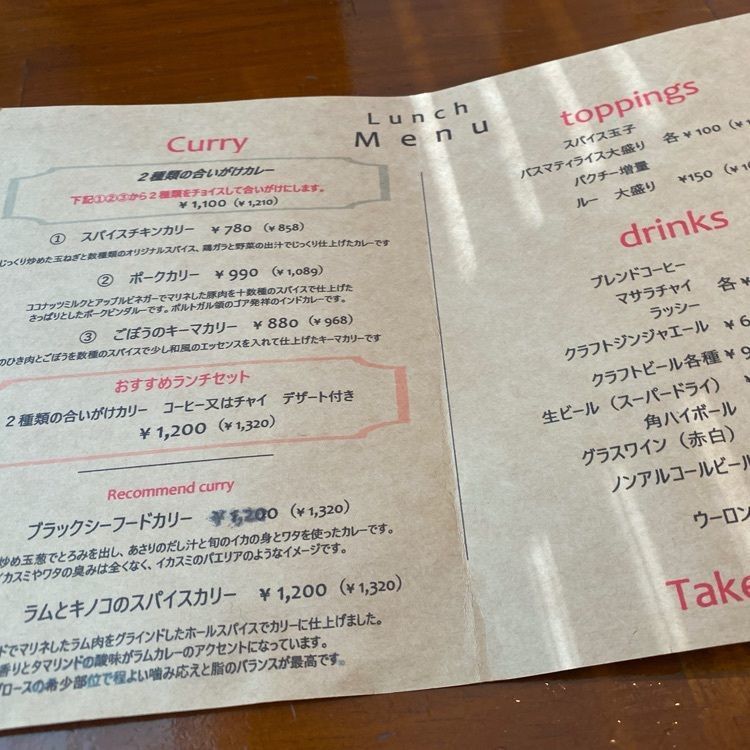 Lunch
Menu
Curry
２種類の合いがけカレー
下記①②③から２種類をチョイスして合いがけにします。
¥ 1,100 (¥ 1,210)
① スパイスチキンカリー ¥ 780 (¥ 858)
じっくり炒めた玉ねぎと数種類のオリジナルスパイス、鶏ガラと野菜の出汁でじっくり仕上げたカレーです
② ポークカリー ¥ 990 (¥ 1,089)
ココナッツミルクとアップルビネガーでマリネした豚肉を十数種のスパイスで仕上げた
さっぱりとしたポークビンダルーです。ポルトガル領のゴア発祥のインドカレーです。
③ ごぼうのキーマカリー ¥ 880 (¥ 968)
のひき肉とごぼうを数種のスパイスで少し和風のエッセンスを入れて仕上げたキーマカリーです
おすすめランチセット
２種類の合いがけカリー コーヒー又はチャイ デザート付き
¥ 1,200 (¥ 1,320)
Recommend curry
ブラックシーフードカリー ¥ 1,200 (¥ 1,320)
炒め玉葱でとろみを出し、あさりのだし汁と旬のイカの身とワタを使ったカレーです。
イカスミやワタの臭みは全くなく、イカスミのパエリアのようなイメージです。
ラムとキノコのスパイスカリー ¥ 1,200 (¥ 1,320)
ドでマリネしたラム肉をグラインドしたホールスパイスでカリーに仕上げました。
香りとタマリンドの酸味がラムカレーのアクセントになっています。
ロースの希少部位で程よい噛み応えと脂のバランスが最高です。
toppings
スパイス玉子
バスマティライス大盛り 各 ¥ 100
パクチー増量
ルー 大盛り ¥150
drinks
ブレンドコーヒー
マサラチャイ 各 ¥
ラッシー
クラフトジンジャエール ¥ 6
クラフトビール各種 ¥ 9
生ビール（スーパードライ）
角ハイボール
グラスワイン（赤白）
ノンアルコールビール
ウーロン
Take